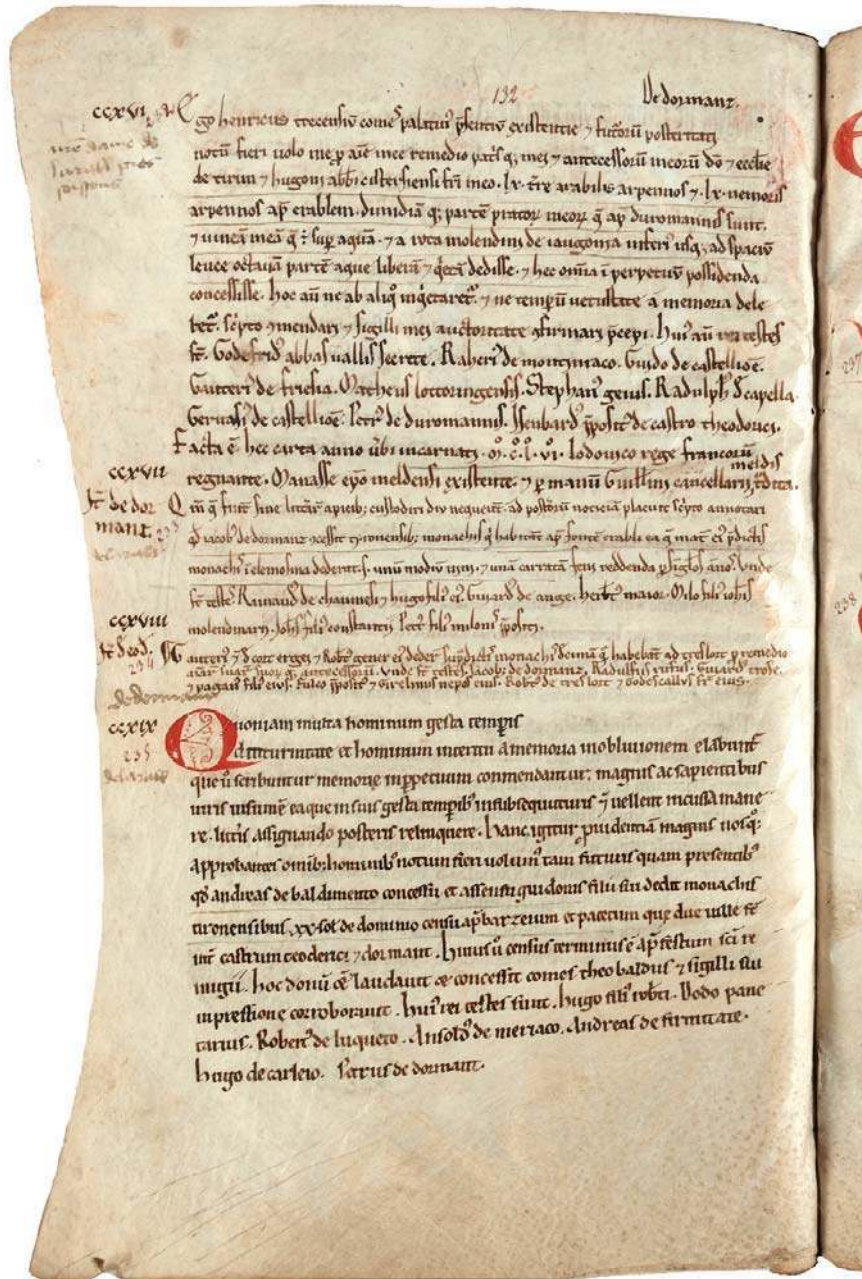 132
De dormanz.
ccxvi
Ego henricus trecensiū comes palatin' p̄sentiū existentie ⁊ futorū posteritati
notū fieri volo me p̄ aīe mee remedio pat's q; mei ⁊ antecessorū meorū dō ⁊ ecclie
de tirun ⁊ hugoni abbi cisterfiensi fri meo. lx. tr̄e arabilis arpennos ⁊ lx. nemoris
arpennos ap̄ erablem. dimidiā q; partē pratoꝝ meoꝝ q̄ ap̄ duromannis sunt.
⁊ vineā meā q̄ ÷ sup̄ aquā. ⁊ a rota molendini de iaugonia inferi' usq; ad spaciū
leuce octavā partē aque liberā ⁊ q̄etā dedisse. ⁊ hec om̄ia ī perpetuū possidenda
concessisse. hoc aū ne ab aliq̊ inq̄etaret'. ⁊ ne temp̄ū vetustate a memoria dele
ret'. sc̄pto ꝯmendari ⁊ sigilli mei auctoritate ꝯfirmari p̄cepi. hui' aū rei testes
st̄. Godefrid' abbas vallis secrete. Raheri' de montmaco. Guido de castelliōe.
Gauteri' de frisia. Matheus lottoringensis. Stephan' genus. Radulph' d' capella.
Gervasi' de castelliōe. Petr' de duromannis. Isenbard' p̄posit' de castro theodorici.
Facta ē hec carta anno v̄bi incarnati. M̊. c̊. l̊. vı̊. lodovico rege francorū
regnante. Manasse ep̄o meldensi existente. ⁊ p̄ manū Guillmi cancellarii meldis t̄dita.
ccxvii
It de dor
manz.
Qm̄ q̄ fiunt sine litt'aꝝ apicib; custodiri diu nequeunt. ad post'orū noticiā placuit sc̄pto annotari
qd iacob' de dormanz ꝯcessit tyronensib; monachis q̄ habitāt ap̄ fontē erabli ea q̄ mat' ei' p̄dictis
monachis ī elemosina dederat. s. unū modiū vini. ⁊ unā carratā feni reddenda p̄ sīglos ānos. Unde
st̄ testes. Rainaud' de chaumesi ⁊ hugo fili' ei'. Guiard' de ange. herb't' maior. Milo fili' ioh̄is
molendinarii. Joh̄s fili' constantii. Petr' fili' miloni' p̄positi.
ccxviii
It de eod.
234
Gauteri' ⁊ d'cort erges ⁊ Rob't' gener ei' deder' sup̄dict' monachis decimā q̄ habebāt ad treslort p̄ remedio
aiaꝝ suaꝝ suorꝝ q; antecessorū. Unde st̄ testes. Jacob' de dormanz. Radulfus rufus. Guiard' trose.
⁊ pagan' fili' eius. fulco p̄posit' ⁊ Girelmus nepos eius. Rob't' de treslort ⁊ Godescallus fr̄ eius.
de dormanz
ccxix
235
Quoniam multa hominum gesta temp̄is
diuturnitate et hominum interitu a memoria in oblivionem elabunt'
que ū scribuntur memorie in p̄petuum conmendantur; magnis ac sapientibus
viris visum ē ea que in suis gesta temp̄ib' in subsequituris q̄ vellent inc'ussa mane
re. litt'is assignando posteris relinquere. hanc igitur p̄videntiā magnis nos q;
approbantes om̄ib; hominib' notum fieri volum' tam futuris quam presentib'
qd' andreas de baldimento concessu et assensu guidonis filii sui dedit monachis
tironensibus .xx. sol' de dominio censu ap̄ barzeium et pacetum que due ville st̄
int' castrum teoderici ⁊ dormant. huius ū census terminus ē ap̄ festum sc̄i re
migii. hoc donū œ̄ laudavit œ concessit comes theobaldus ⁊ sigilli sui
inpressione corroboravit. hui' rei testes sunt. hugo fili' rob'ti. Dodo pane
tarius. Robert' de luqueto. Ansold' de meriaco. Andreas de firmitate.
hugo de carleio. Petrus de dormant.
237
238